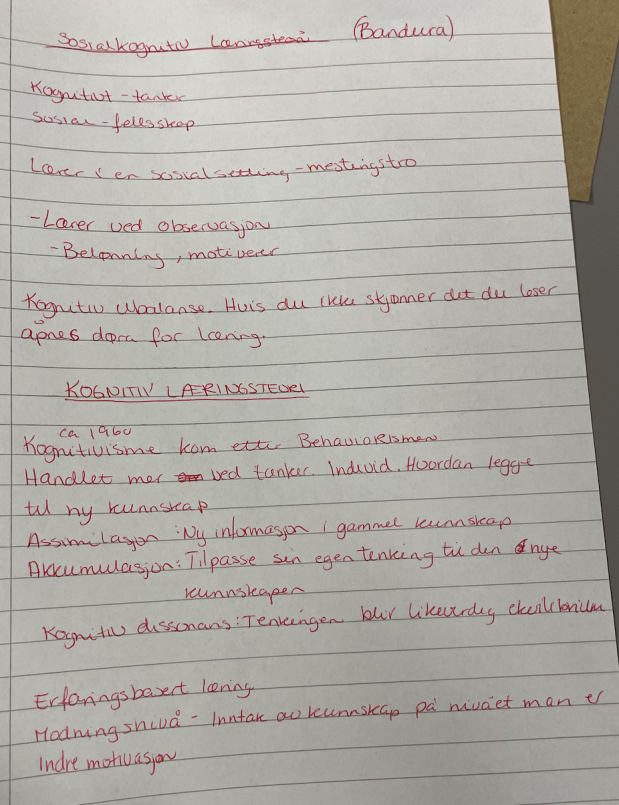 Sosialkognitiv Læringsteori (Bandura)
Kognitivt - tanker
Sosial - fellesskap
Lærer i en sosial setting - mestringstro
- Lærer ved observasjon
- Belønning, motiverer
Kognitiv ubalanse. Hvis du ikke skjønner det du leser
åpnes døra for læring.
KOGNITIV LÆRINGSTEORI
ca 1960
Kognitivisme kom etter Behaviorismen
Handlet mer ved tanker. Individ. Hvordan legge
til ny kunnskap
Assimilasjon: Ny informasjon i gammel kunnskap
Akkumulasjon: Tilpasse sin egen tenking til den nye
kunnskapen
Kognitiv dissonans: Tenkingen blir likeverdig ekvilibrium
Erfaringsbasert læring
Modningsnivå - Inntak av kunnskap på nivået man er
Indre motivasjon